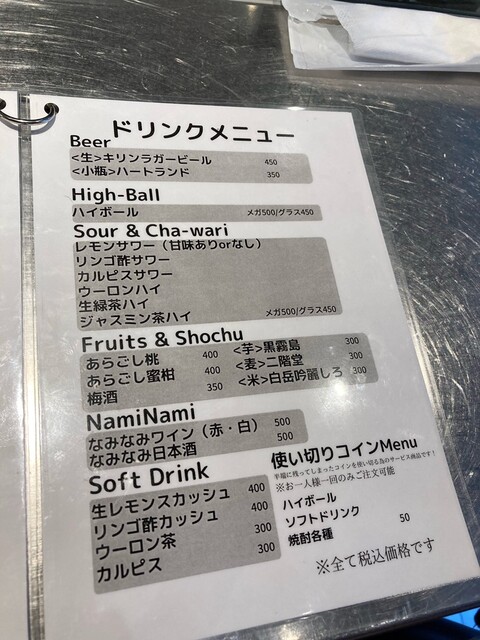 ドリンクメニュー
Beer
<生>キリンラガービール 450
<小瓶>ハートランド 350
High-Ball
ハイボール メガ500/グラス450
Sour & Cha-wari
レモンサワー（甘味ありorなし）
リンゴ酢サワー
カルピスサワー
ウーロンハイ
生緑茶ハイ
ジャスミン茶ハイ メガ500/グラス450
Fruits & Shochu
あらごし桃 400 <芋>黒霧島 300
あらごし蜜柑 400 <麦>二階堂 300
梅酒 350 <米>白岳吟麗しろ 300
NamiNami
なみなみワイン（赤・白） 500
なみなみ日本酒 500
Soft Drink
生レモンスカッシュ 400
リンゴ酢カッシュ 400
ウーロン茶 300
カルピス 300
使い切りコインMenu
半端に残ってしまったコインを使い切る為のサービス商品です！
※お一人様一回のみご注文可能
ハイボール
ソフトドリンク 50
焼酎各種
※全て税込価格です